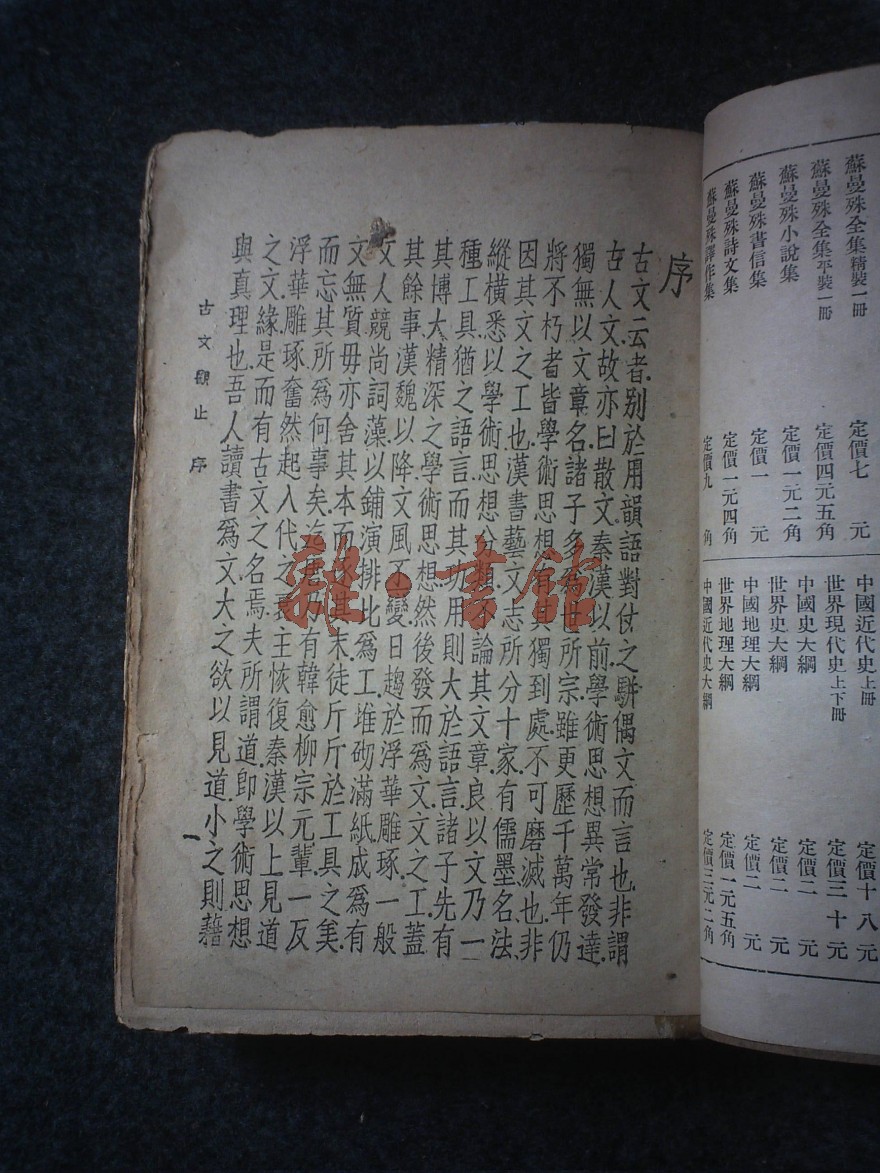 蘇曼殊全集精裝一冊 定價七元
蘇曼殊全集平裝一冊 定價四元五角
蘇曼殊小說集 定價一元二角
蘇曼殊書信集 定價一元
蘇曼殊詩文集 定價一元四角
蘇曼殊譯作集 定價九角
中國近代史上冊 定價十八元
世界現代史上下冊 定價三十元
中國史大綱 定價二元
世界史大綱 定價二元
中國地理大綱 定價二元
世界地理大綱 定價一元五角
中國近代史大綱 定價三元二角
序
古文云者別於用韻語對仗之駢偶文而言也非謂
古人文故亦曰散文秦漢以前學術思想異常發達
獨無以文章名諸子多為世所宗雖更歷千萬年仍
將不朽者皆學術思想有其獨到處不可磨滅也非
因其文之工也漢書藝文志所分十家有儒墨名法
縱橫悉以學術思想分類不論其文章良以文乃一
種工具猶之語言而其功用則大於語言諸子先有
其博大精深之學術思想然後發而爲文文之工蓋
其餘事漢魏以降文風丕變日趨於浮華雕琢一般
文人競尚詞藻以鋪演排比爲工堆砌滿紙成爲有
文無質毋亦舍其本而求其末徒斤斤於工具之美
而忘其所爲何事矣迄唐乃有韓愈柳宗元輩一反
浮華雕琢奮然起八代之衰主恢復秦漢以上見道
之文緣是而有古文之名焉夫所謂道即學術思想
與真理也吾人讀書爲文大之欲以見道小之則藉
古文觀止 序
一
雜·書館